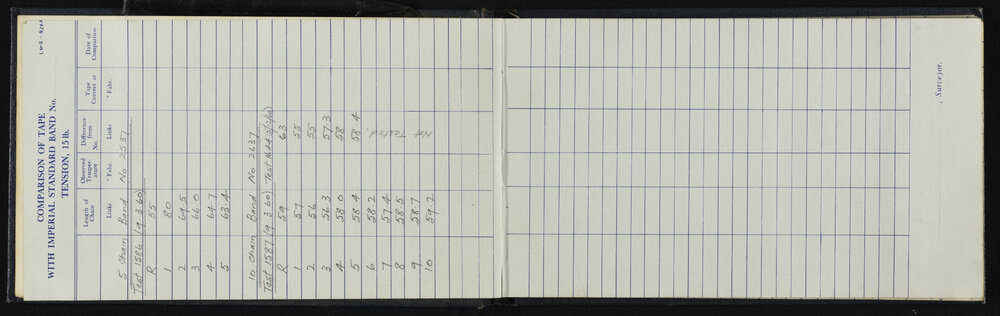 L & S - R266
COMPARISON OF TAPE
WITH IMPERIAL STANDARD BAND No.
TENSION, 15 lb.
Length of Chain Observed Temper-ature Difference from No. Tape Correct at Date of Comparison
Links ° Fahr. Links ° Fahr.
5 Chain Band No 2537
Test 1586 (9.3.60)
R 55
1 80
2 69.5
3 66.0
4 64.7
5 63.4
10 Chain Band No 2637
Test 1587 (9.3.60) Test 1644
R 59 63
1 57 55
2 56 55
3 56.3 57.3
4 58.0 58
5 58.4 58.4
6 58.2
7 57.4
8 58.5
9 58.7
10 59.2
Not Tested.
, Surveyor.